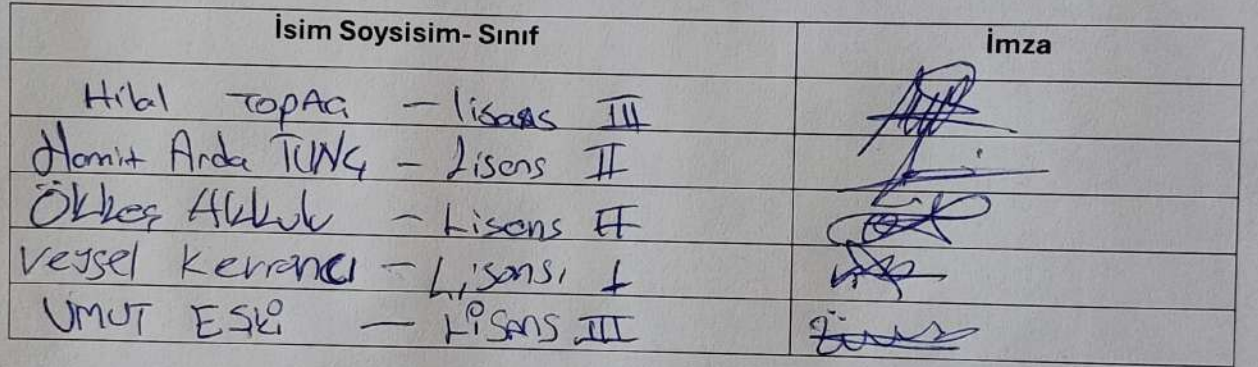 İsim Soysisim- Sınıf İmza
Hilal TOPAG - lisans III
Hamit Arda TUNÇ - Lisans II
Ökkeş Akkuk - Lisans II
Veysel Kervancı - Lisans I
UMUT ESKİ - Lisans III